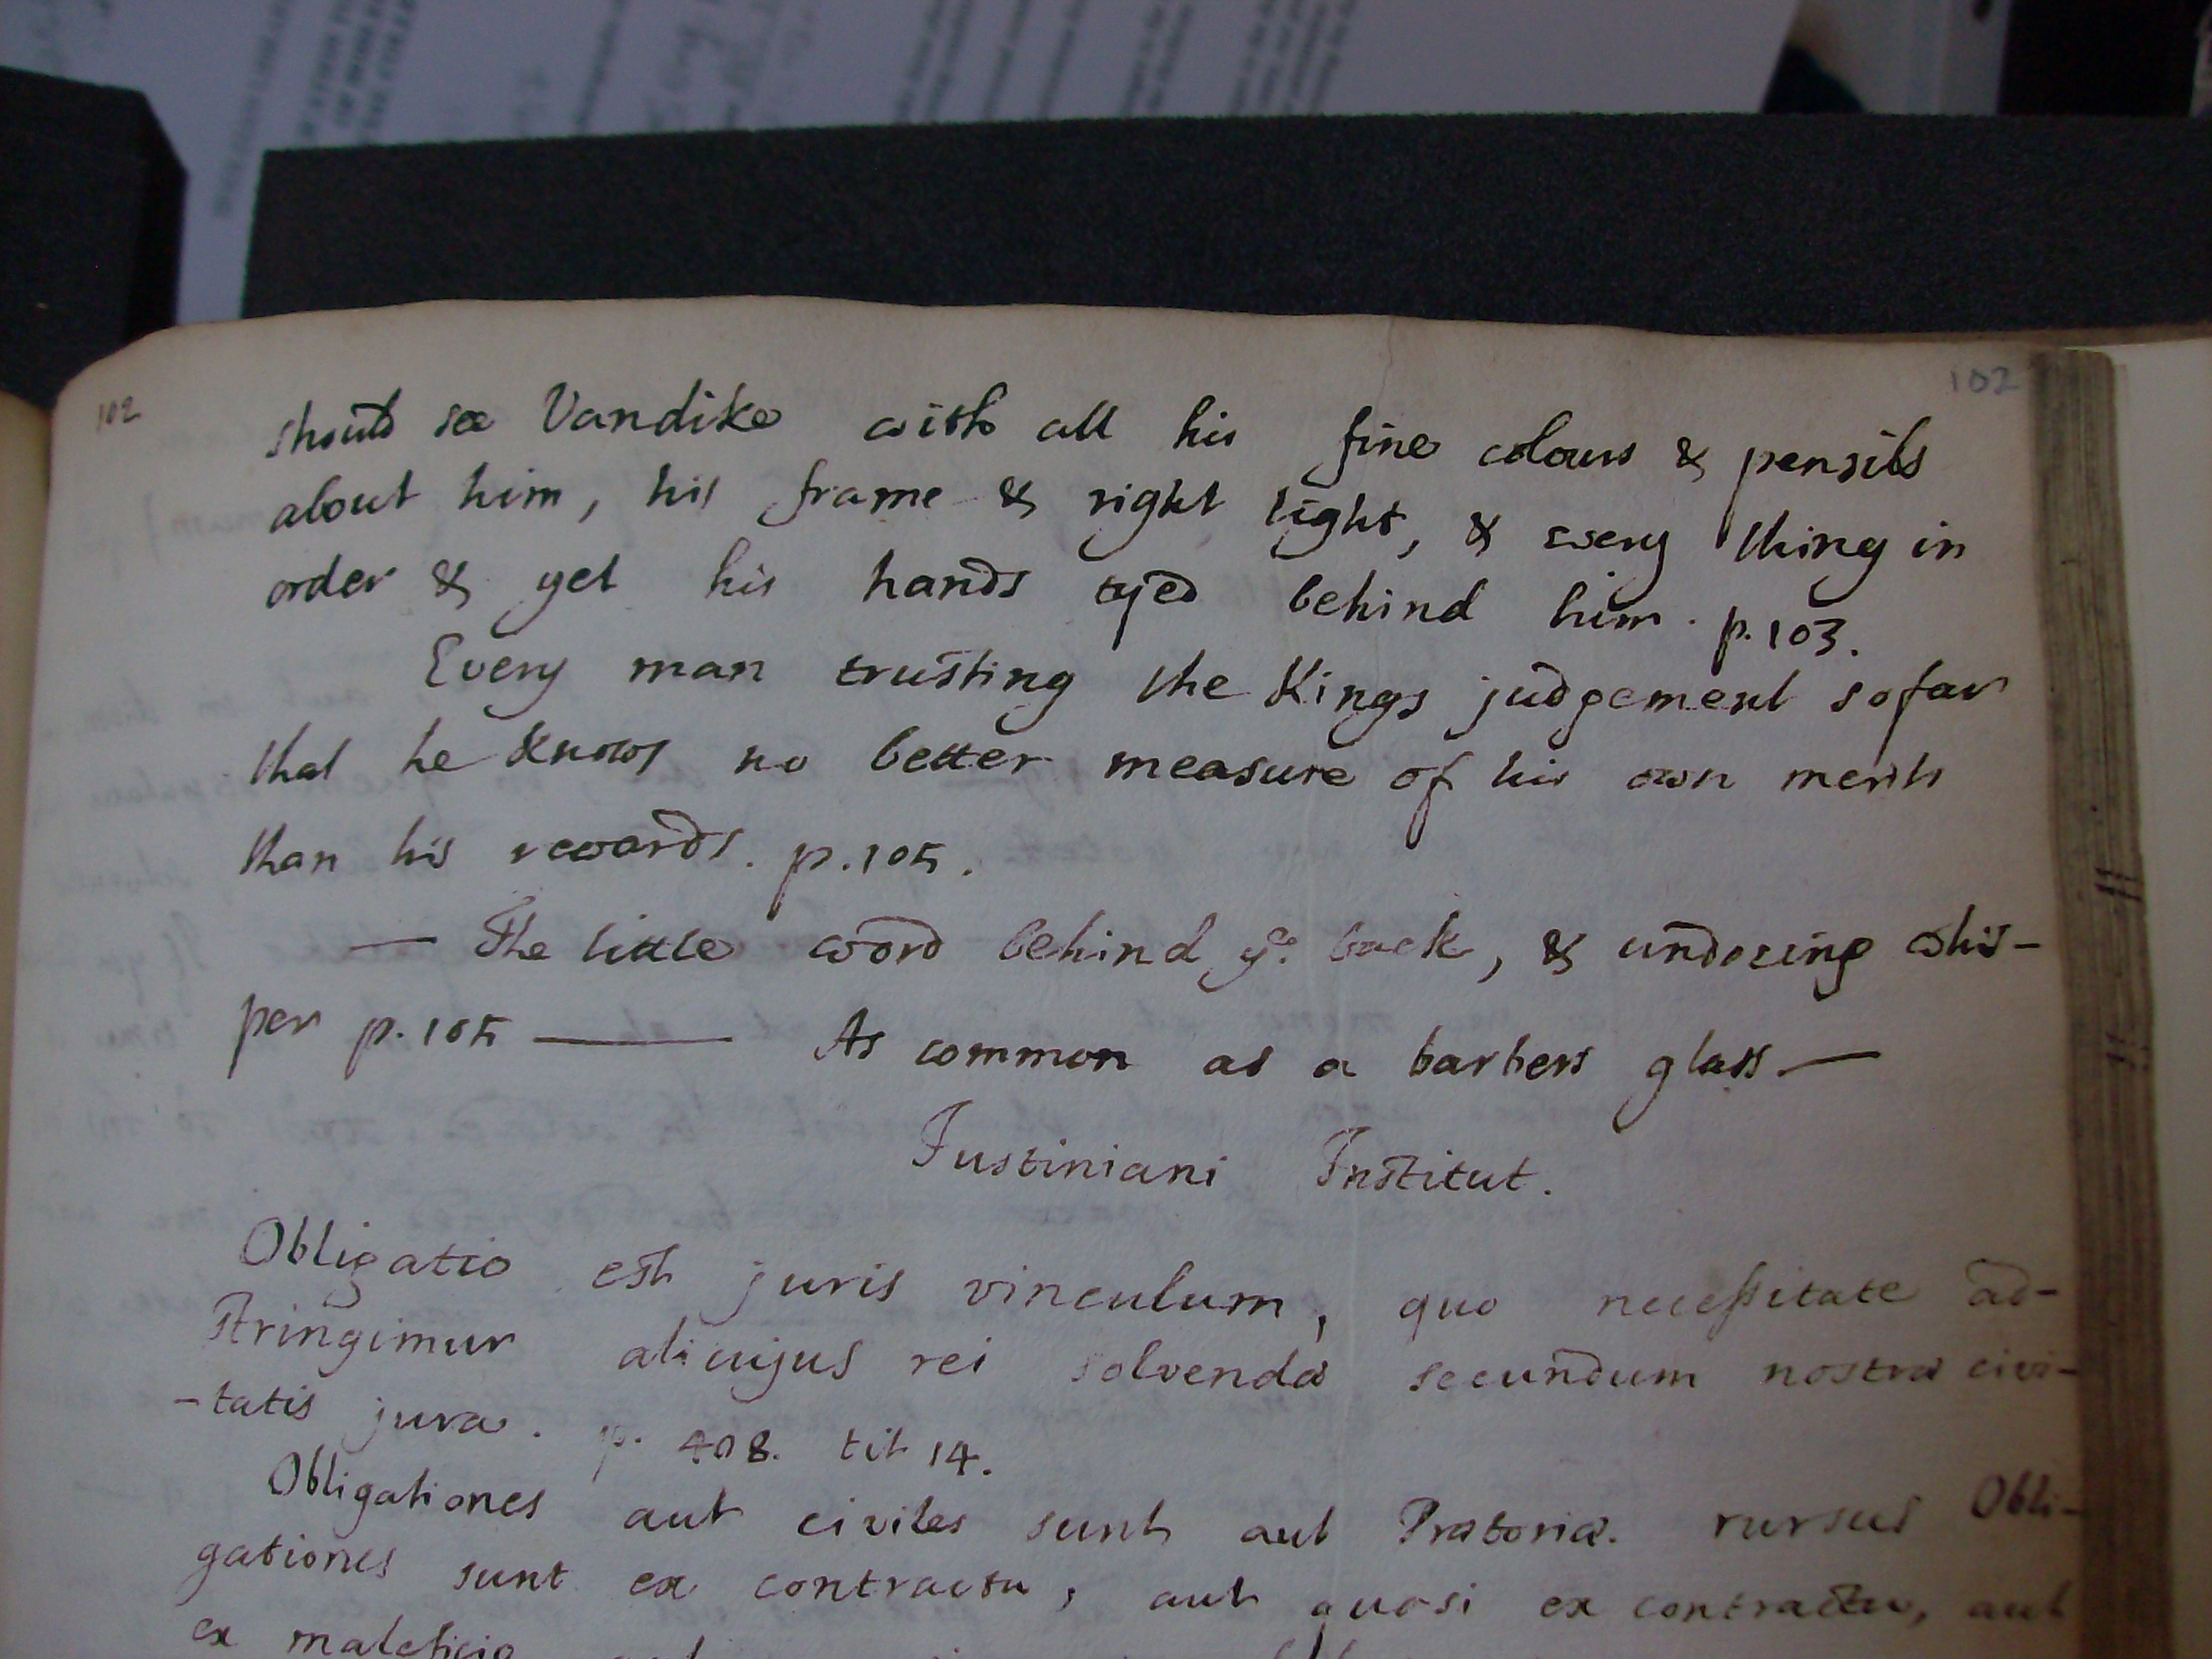 102 102
should see Vandike with all his fine colours & pensils
about him, his frame & right light, & every thing in
order & yet his hands tyed behind him. p.103.
Every man trusting the Kings judgement so far
that he knows no better measure of his own merits
than his rewards. p.105.
— The little word behind ye. back, & undoeing whis-
per p.105 —— As common as a barbers glass —
Justiniani Institut.
Obligatio est juris vinculum, quo necessitate ad-
stringimur alicujus rei solvendæ secundum nostræ civi-
-tatis jura. p. 408. tit 14.
Obligationes aut civiles sunt aut Prætoriæ. rursus Obli-
gationes sunt ex contractu, aut quasi ex contractu, aut
ex maleficio